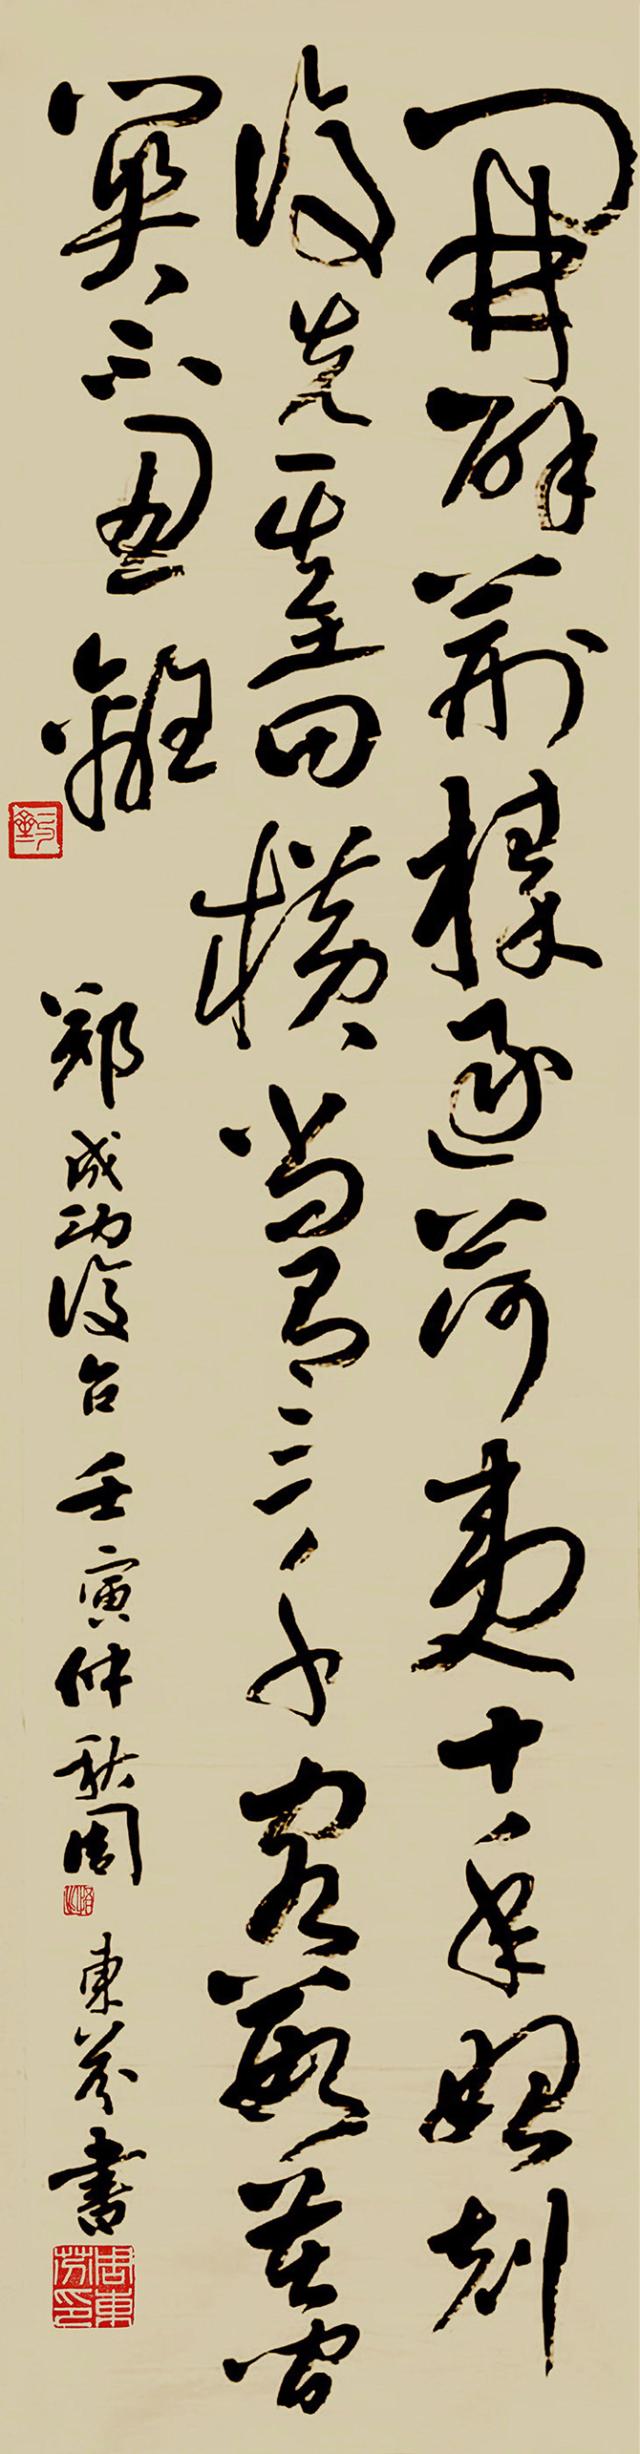 開辟荊榛逐荷夷十年始剋
復先基田橫尚有三千客茹苦間
關不忍離
鄭成功復台 壬寅仲秋周東芬書
周東芬印